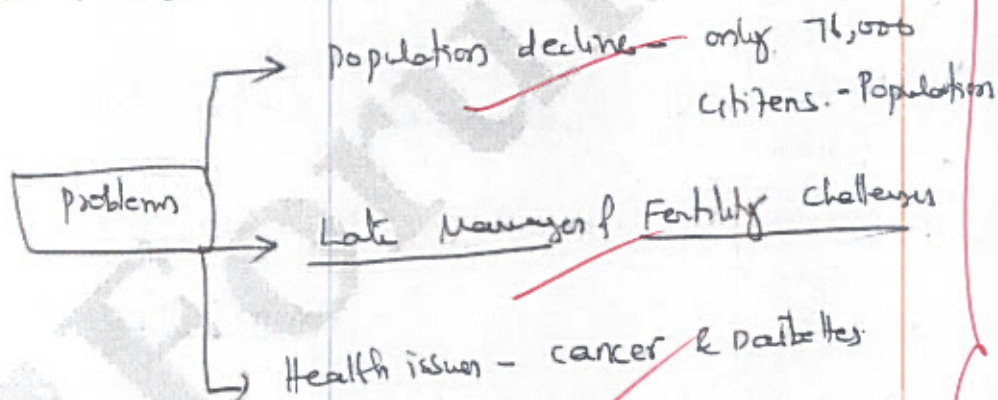 Population decline - only 76,000
Citizens. - Population
Problems
Late Marriages & Fertility Challenges
Health issues - cancer & Daibettes